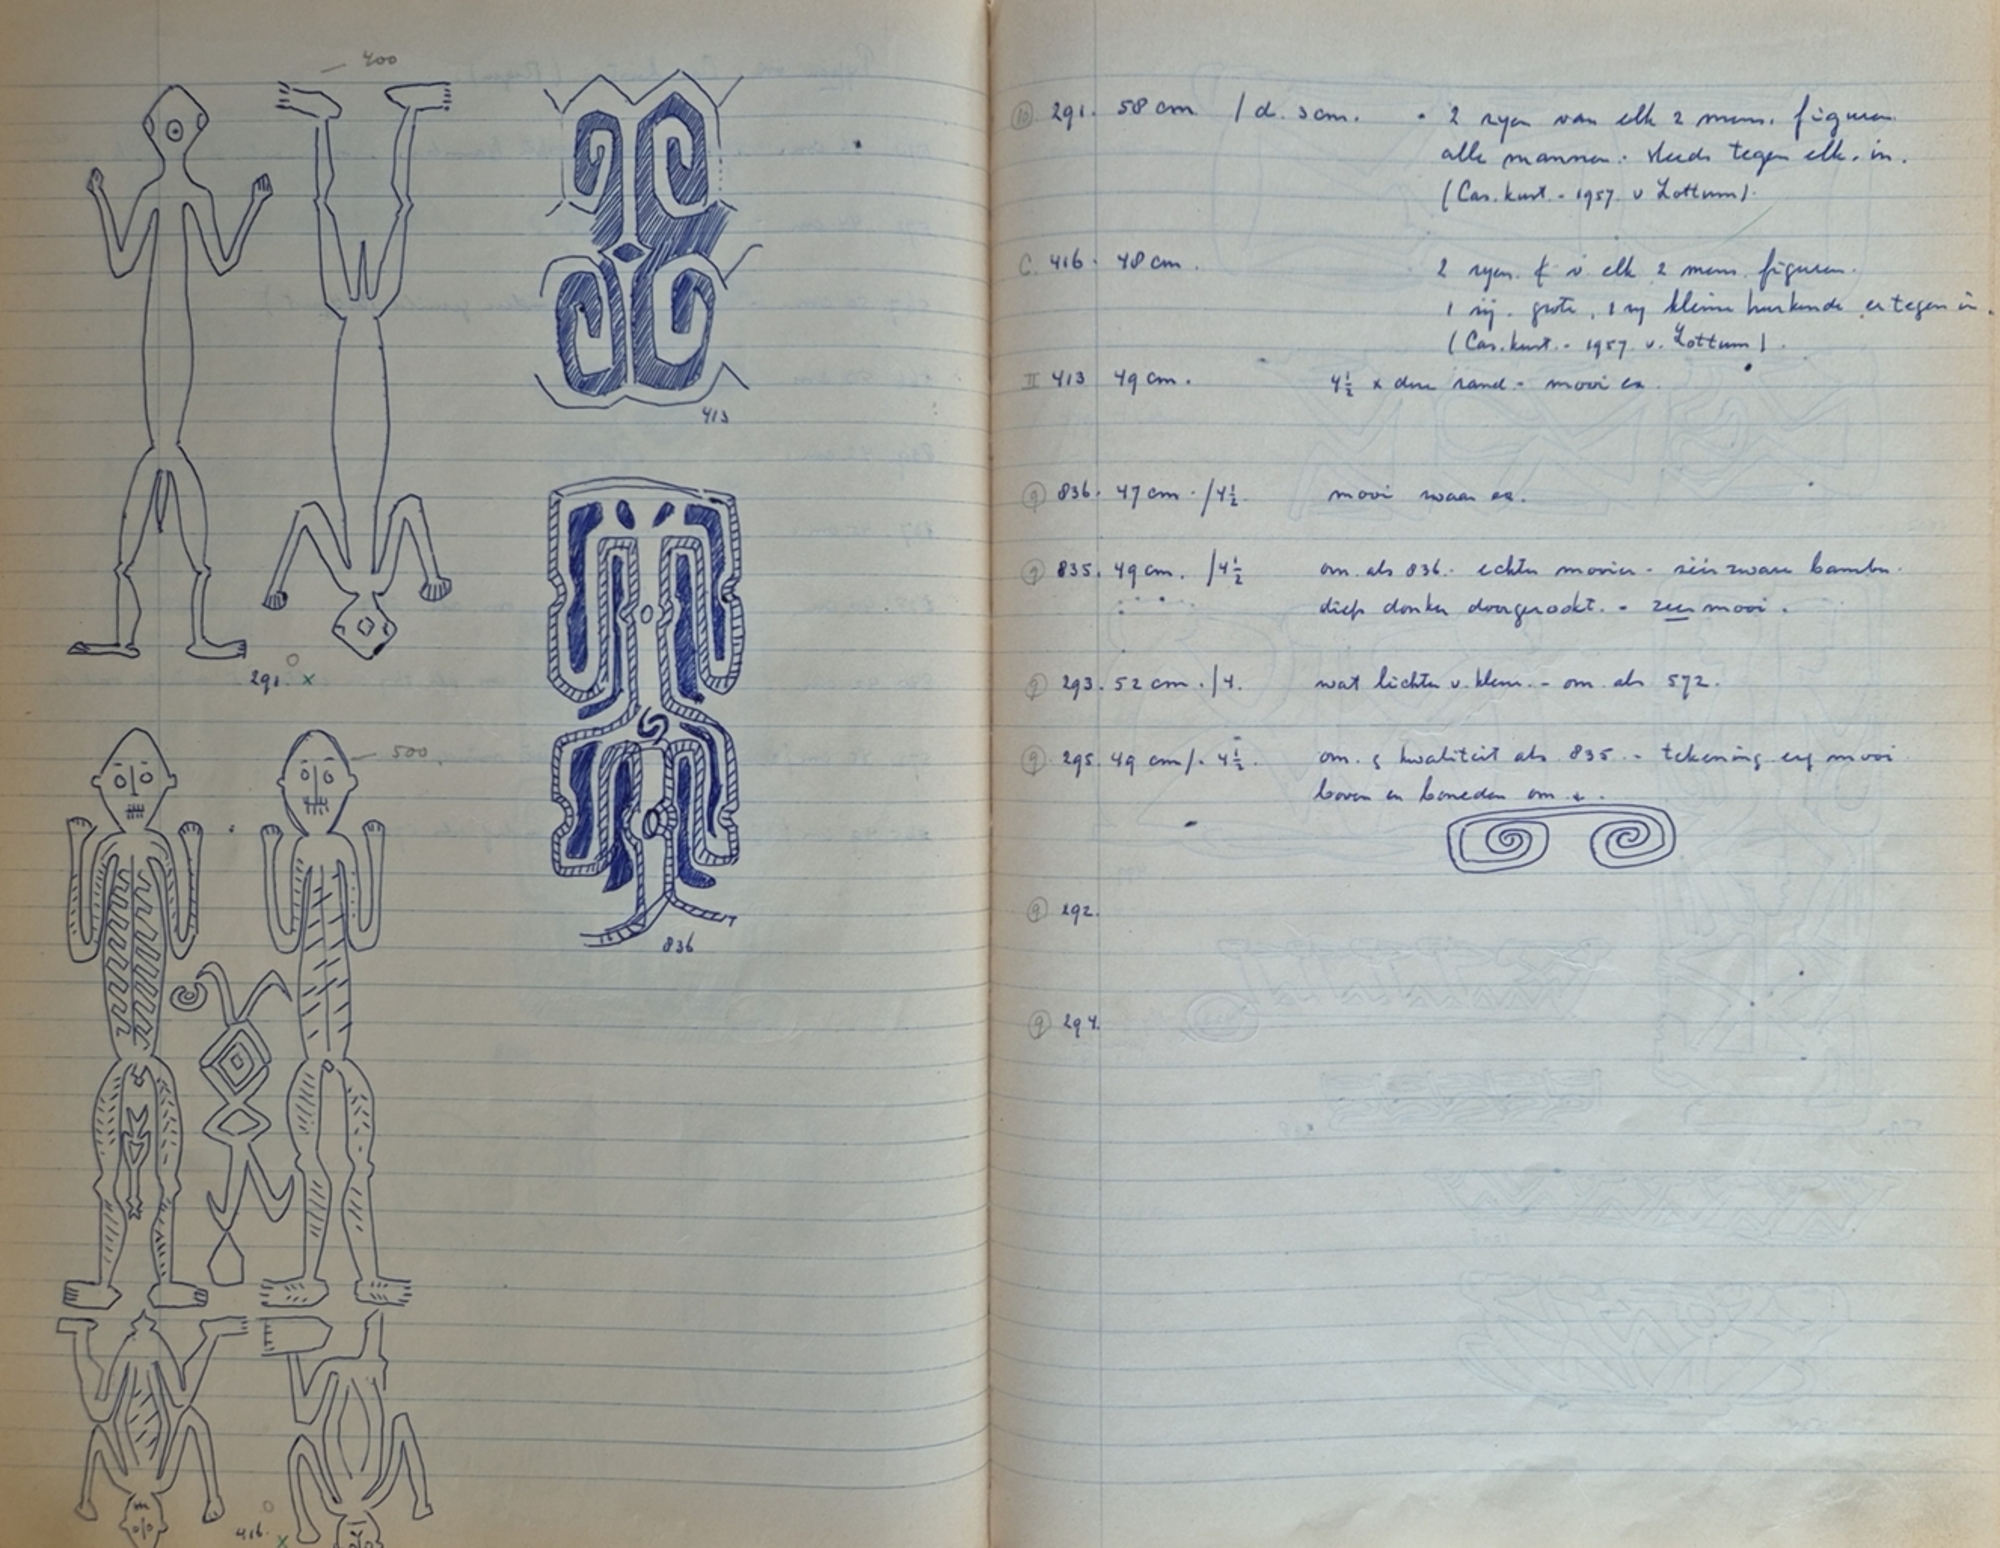 400
413
291. x
500
836
416. x
(10) 291. 58 cm / d. 3 cm. • 2 ryen van elk 2 mens. figuren
alle mannen. steeds tegen elk. in.
(Cas. kust. - 1957. v Lottum).
C. 416. 48 cm. 2 ryen. v. elk 2 mens. figuren.
1 rij. grote, 1 ry kleine hurkende er tegen in.
(Cas. kust. - 1957. v. Lottum).
II 413 49 cm. 4½ x dm rand - mooi ex.
(9) 836. 47 cm. / 4½ mooi zwaar ex.
(9) 835. 49 cm. / 4½ om. als 836. echter mooier - zéér zware bambu.
diep donker doorgerookt. - zeer mooi.
(9) 293. 52 cm. / 4. wat lichter v. kleur. - om. als 572.
(9) 295. 49 cm /. 4½. om. kwaliteit als 835. - tekening erg mooi
boven en beneden om.
(9) 292.
(9) 294.